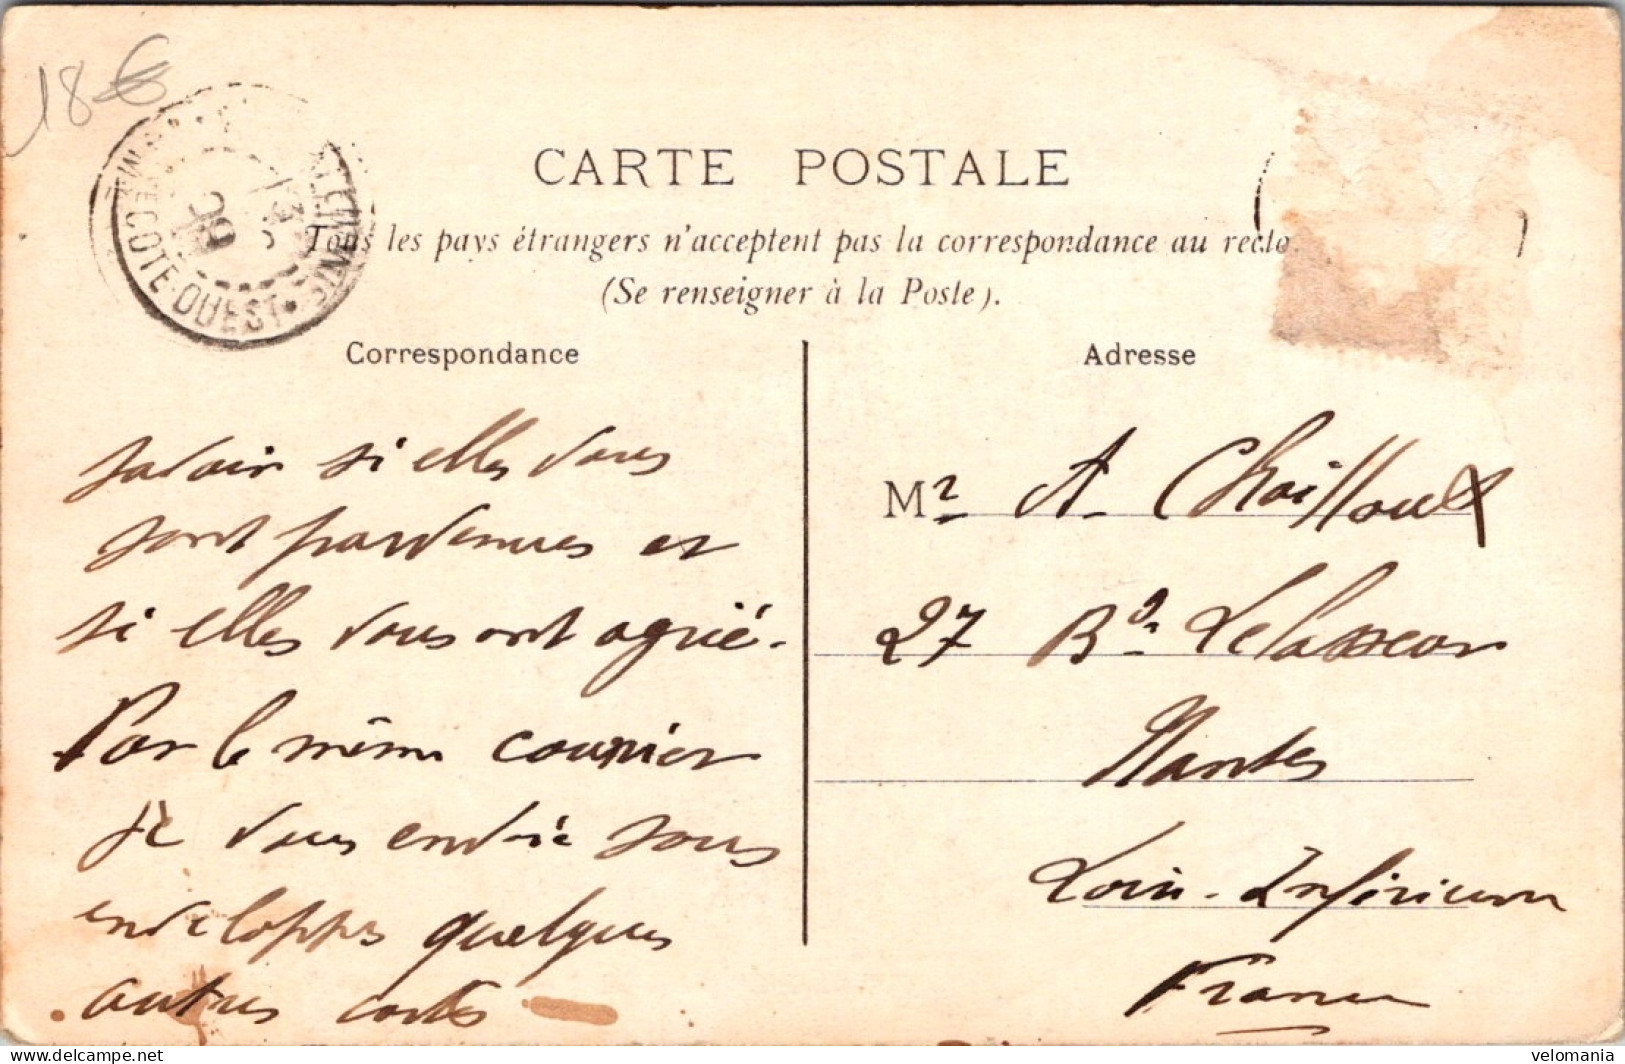 18€
CARTE POSTALE
Tous les pays étrangers n'acceptent pas la correspondance au recto.
(Se renseigner à la Poste).
Correspondance
savoir si elles vous
sont parvenues et
si elles vous ont agréé.
Par le même courrier
je vous envoie sous
enveloppes quelques
autres cartes
Adresse
Mr A. Chailloux
27 Bd Lelasseur
Nantes
Loire-Inférieure
France
COTE OUEST
delcampe.net
velomania